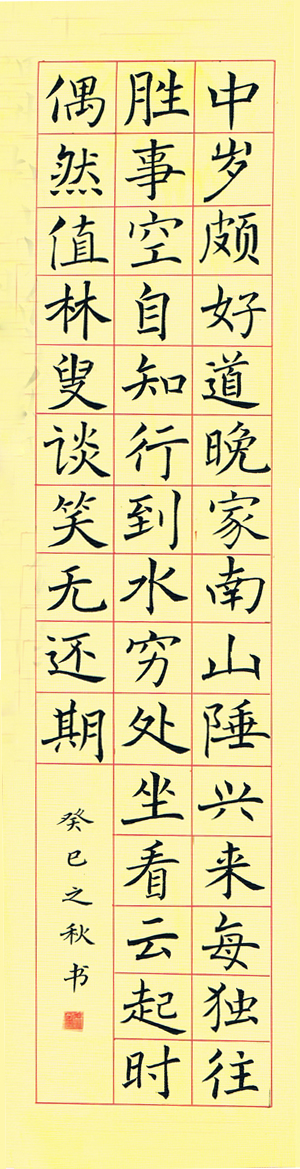 中岁颇好道晚家南山陲兴来每独往
胜事空自知行到水穷处坐看云起时
偶然值林叟谈笑无还期
癸巳之秋书